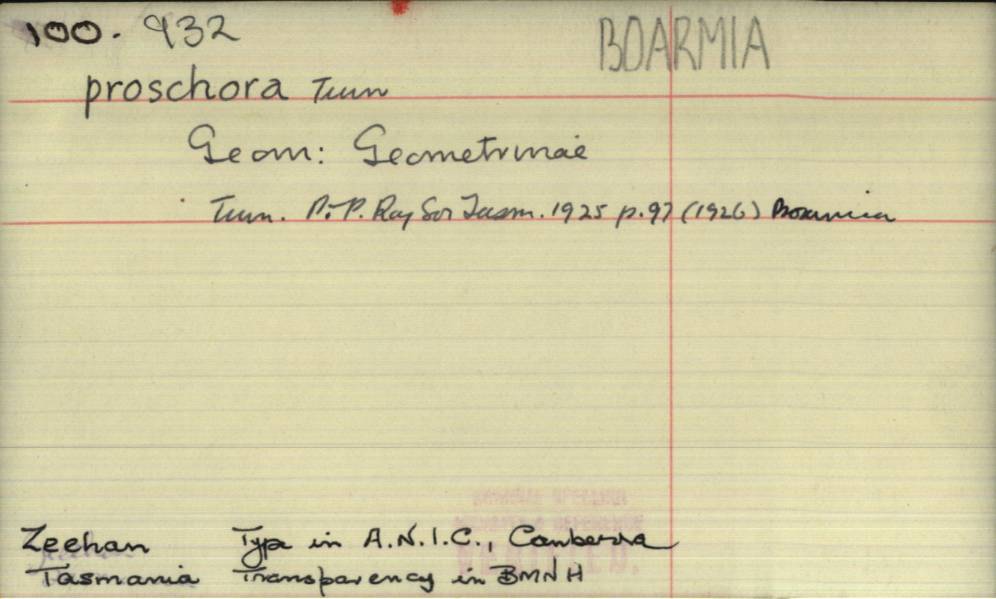 100. 932
BOARMIA
proschora Turn
Geom: Geometrinae
Turn. P.P. Roy Soc Tasm. 1925 p.97 (1926)
Zeehan Type in A.N.I.C., Canberra
Tasmania Transparency in BMNH